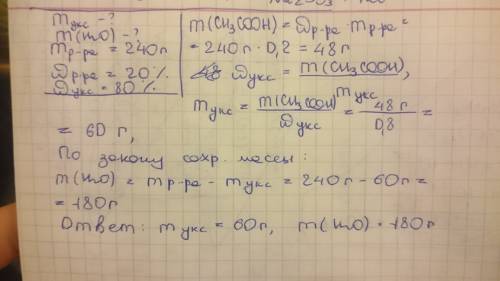 m укс - ?
m(H2O) - ?
m р-ра = 240г
ω р-ра = 20%
ω укс = 80%
m(CH3COOH) = ω р-ра · m р-ра =
= 240г · 0,2 = 48г
ω укс = m(CH3COOH) / m укс,
m укс = m(CH3COOH) / ω укс = 48г / 0,8 =
= 60г,
По закону сохр. массы:
m(H2O) = m р-ра - m укс = 240г - 60г =
= 180г
Ответ: m укс = 60г, m(H2O) = 180г